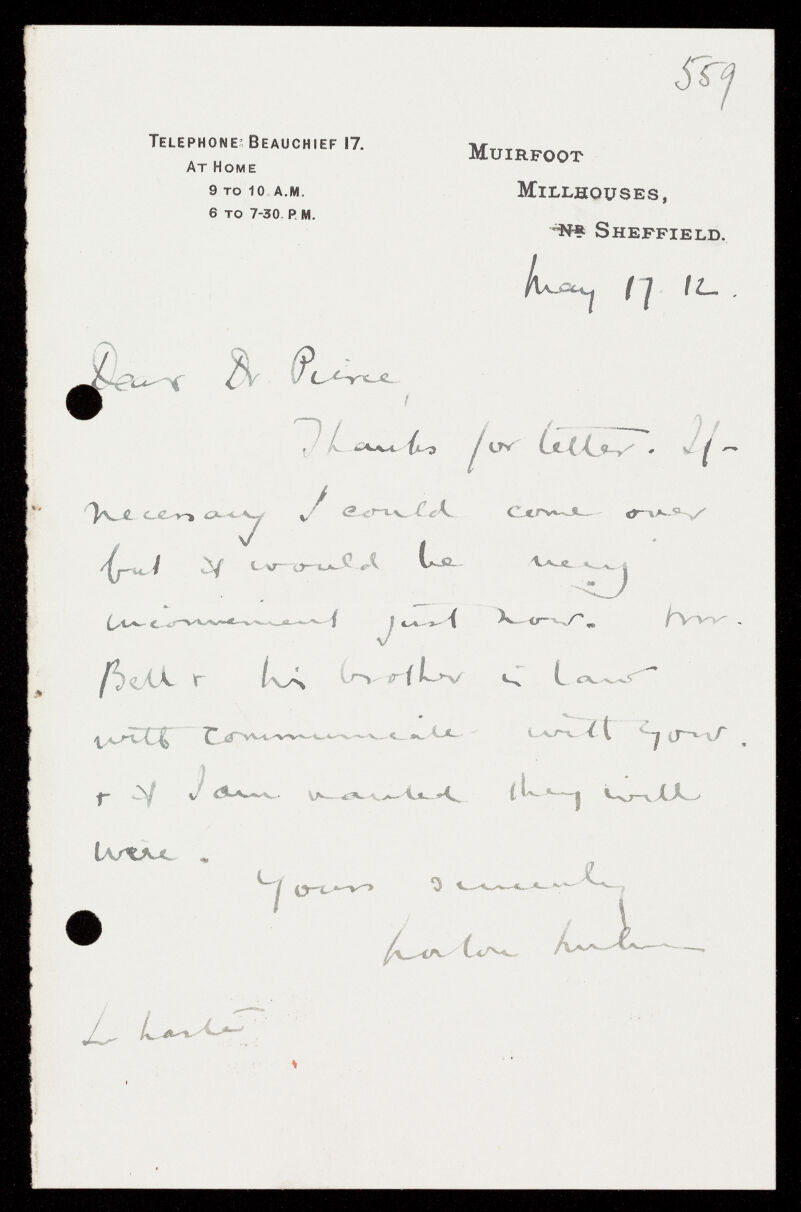 559
TELEPHONE: BEAUCHIEF 17.
AT HOME
9 TO 10 A.M.
6 TO 7-30. P.M.
MUIRFOOT
MILLHOUSES,
NR SHEFFIELD.
May 17 12.
Dear Dr Pierce,
Thanks for letter. If
necessary I could come over
but it would be very
inconvenient just now. Mr.
Bell & his brother in law
will communicate with you.
& if I am wanted they will
wire.
Yours sincerely
In haste